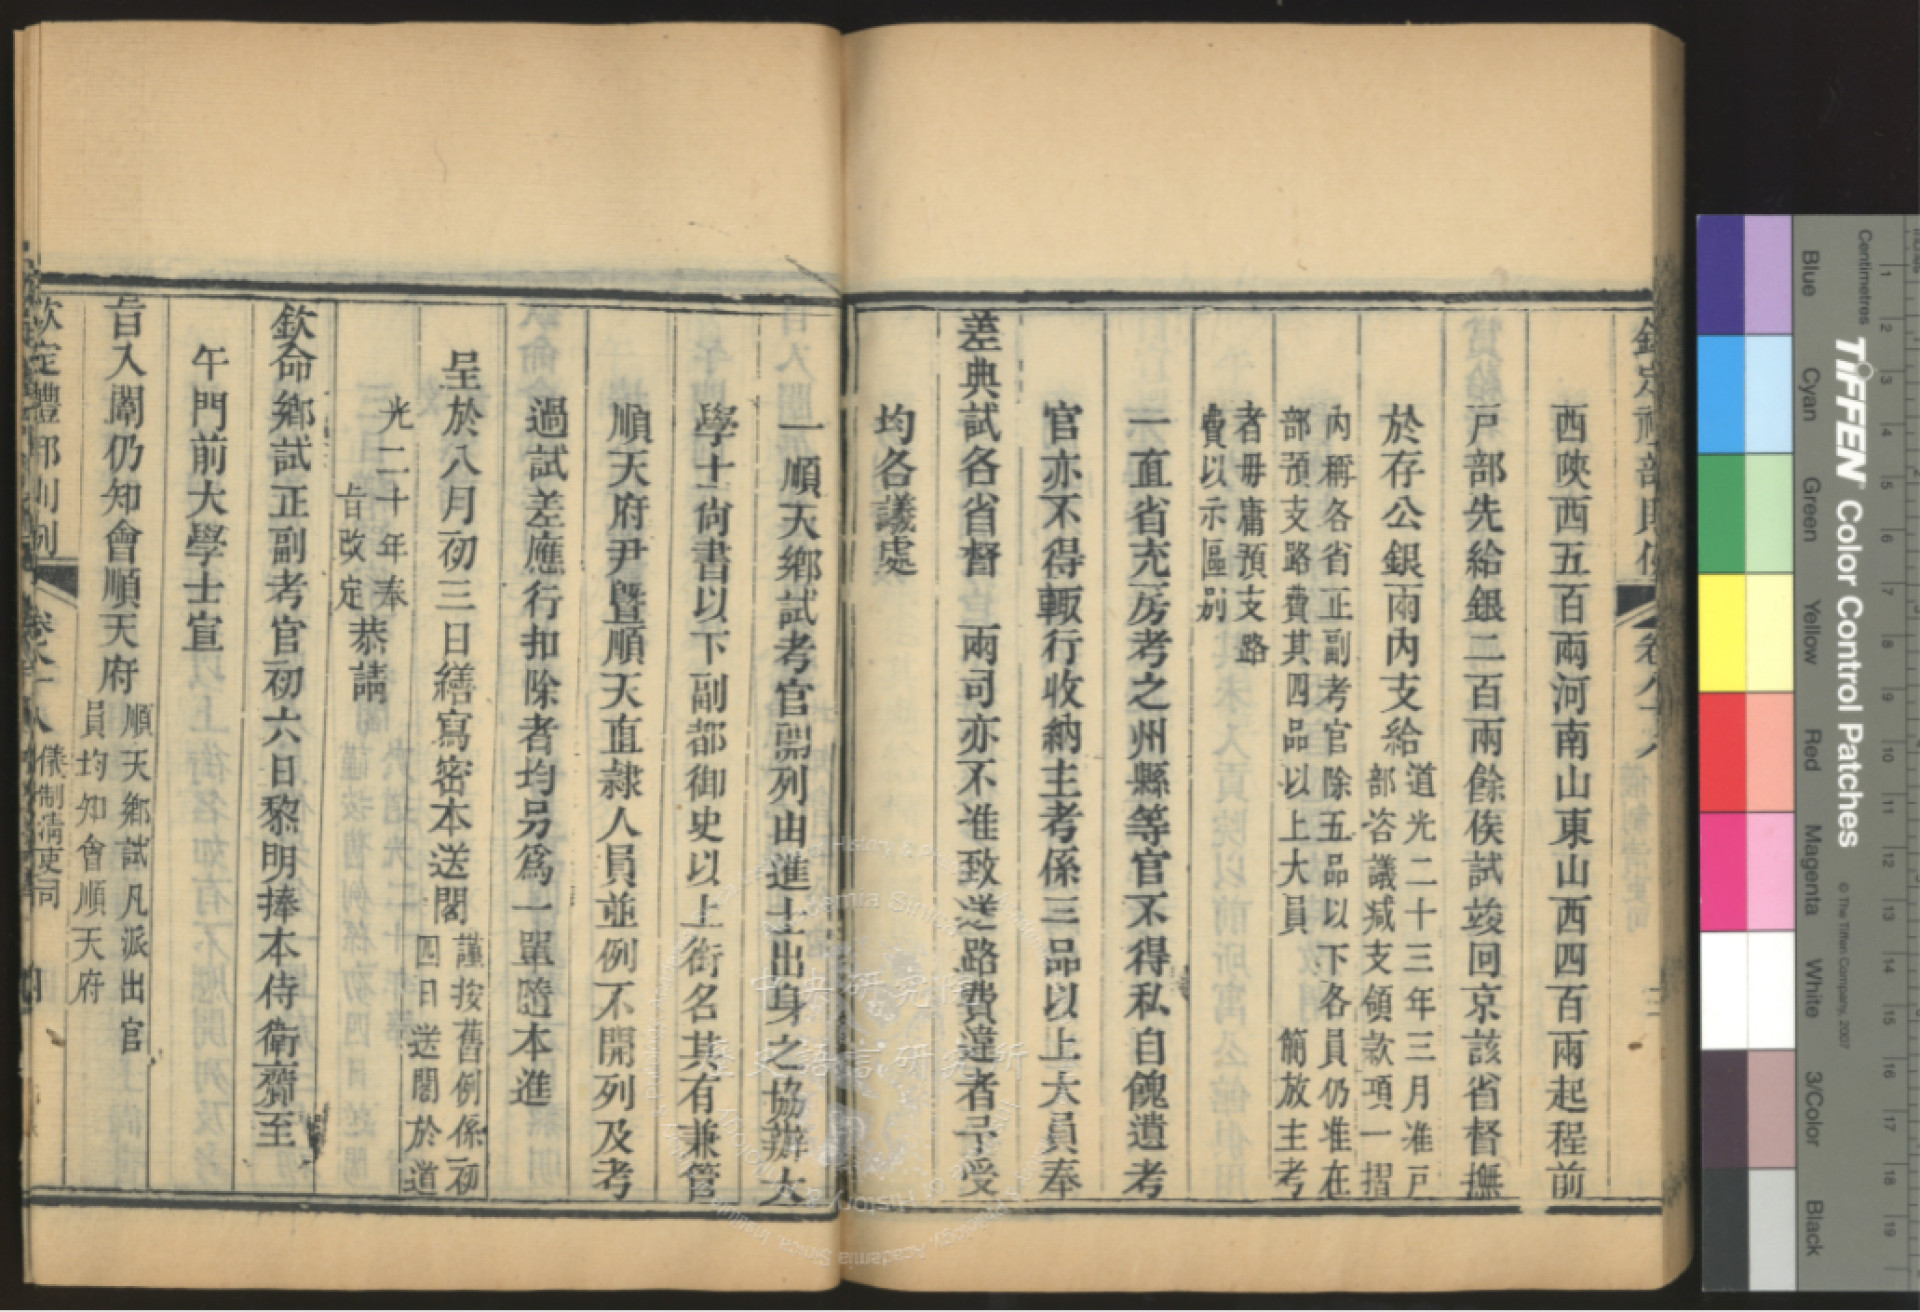 欽定禮部則例 卷八十八
西陝西五百兩河南山東山西四百兩起程前
戸部先給銀二百兩餘俟試竣回京該省督撫
於存公銀兩內支給道光二十三年三月准戸
部咨議減支領款項一摺
內稱各省正副考官除五品以下各員仍准在
部預支路費其四品以上大員 簡放主考
者毋庸預支路
費以示區别
一直省充房考之州縣等官不得私自餽遺考
官亦不得輙行收納主考係三品以上大員奉
差典試各省督 兩司亦不准致送路費違者予受
均各議處
一順天鄉試考官開列由進士出身之協辦大
學士尙書以下副都御史以上銜名其有兼管
順天府尹曁順天直隷人員並例不開列及考
過試差應行扣除者均另爲一單隨本進
呈於八月初三日繕寫密本送閣謹按舊例係初
四日送閣於道
光二十年奉
旨改定恭請
欽命鄉試正副考官初六日黎明捧本侍衛齎至
午門前大學士宣
旨入闈仍知會順天府順天鄉試凡派出官
員均知會順天府
欽定禮部則例 卷八十八 儀制淸吏司
中央研究院
歷史語言研究所
Centimetres
TIFFEN Color Control Patches
© The Tiffen Company, 2007
Blue
Cyan
Green
Yellow
Red
Magenta
White
3/Color
Black
1 2 3 4 5 6 7 8 9 10 11 12 13 14 15 16 17 18 19